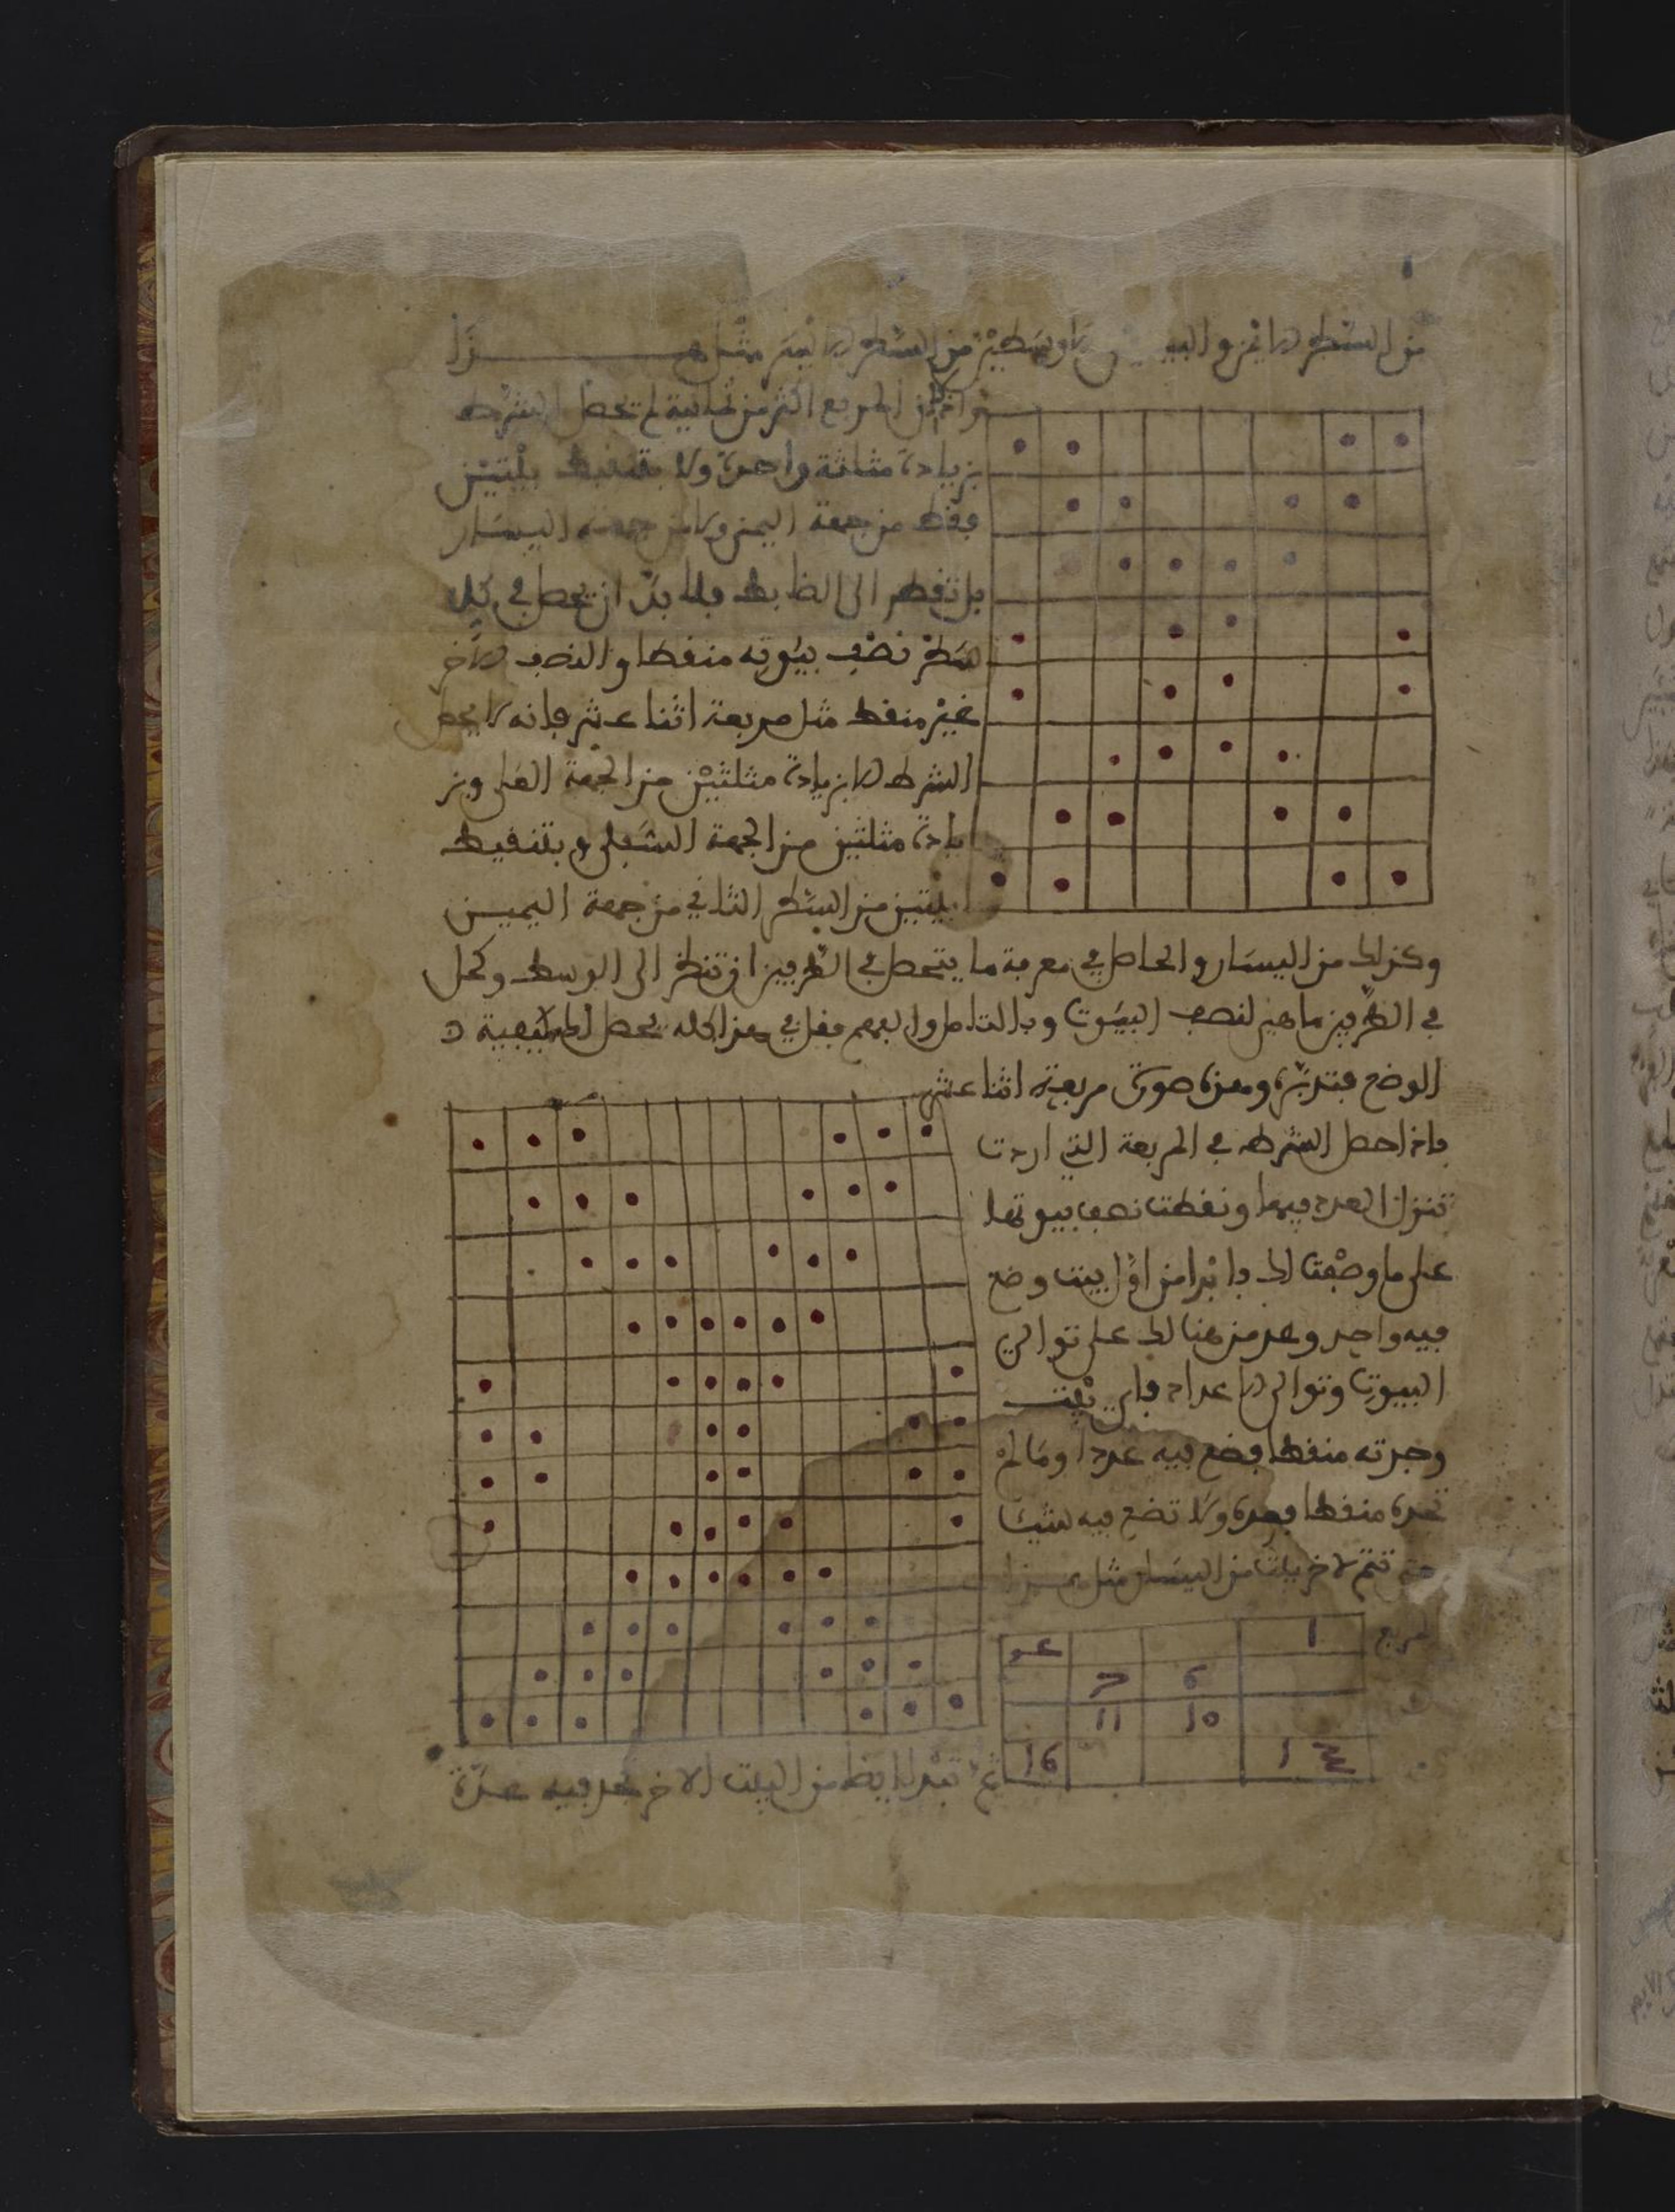 من السطر الايمن والبيـ الاوسطين من السطر الايسر مثل هـــــذا
واذا كان المربع اكثر من ثمانية لم تحصل الشرط
بزيادة مثلثة واحدة ولا بتنقيط بيتين
فقط من جهة اليمين ولا من جهة اليسار
بل تنظر الى الضابط فلا بد ان يحصل في كل
سطر نصف بيوته منقطا والنصف الاخر
غير منقط مثل مربعة اثنا عشر فانه لا يحصل
الشرط الا بزيادة مثلثتين من الجهة العلى وبز
يادة مثلثتين من الجهة السفلى وبتنقيط
بيتين من السطر الثاني من جهة اليميـن
وكذلك من اليسار والحاصل في معرفة ما يتحصل في الطرفين ان تنظر الى الوسط وكمل
في الطرفين ما هين لنصف البيوت وبالتامل والفهم فعل في هذا كله يحصل لك كيفية
الوضع فتدبره وهذه صورة مربعة اثنا عشر
فاذا حصل الشرط في المربعة التي اردت
تنزل العدد فيها ونقطت نصف بيوتها
على ما وصفت لك فابدا من اول بيت وضع
فيه واحد وعد من هنالك على توالي
البيوت وتوالي الاعداد فاي بيت
وجدته منقطا فضع فيه عددا وما لم
تجده منقطا فعده ولا تضع فيه شيئا
حتى تتم لاخر بيت من اليسار مثل هـذا
1
6
10 11
16 1
ثم تبدا ايضا من البيت الاخر تعد فيه عدة